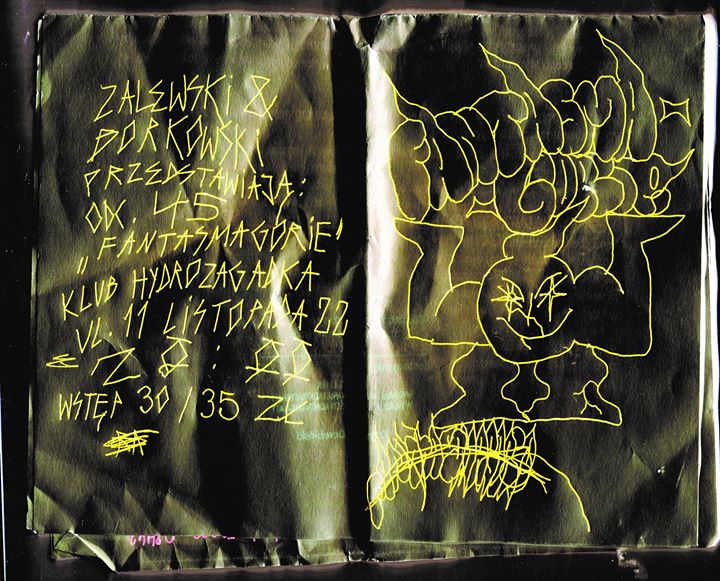 ZALEWSKi &
BORKOWSKi
PRZEDSTAWIAJĄ:
ODC. 45
„FANTASMAGORIE"
KLUB HYDROZAGADKA
UL. 11 LISTOPADA 22
20:00
WSTĘP 30/35 ZŁ
FANTASMA-
GORIE